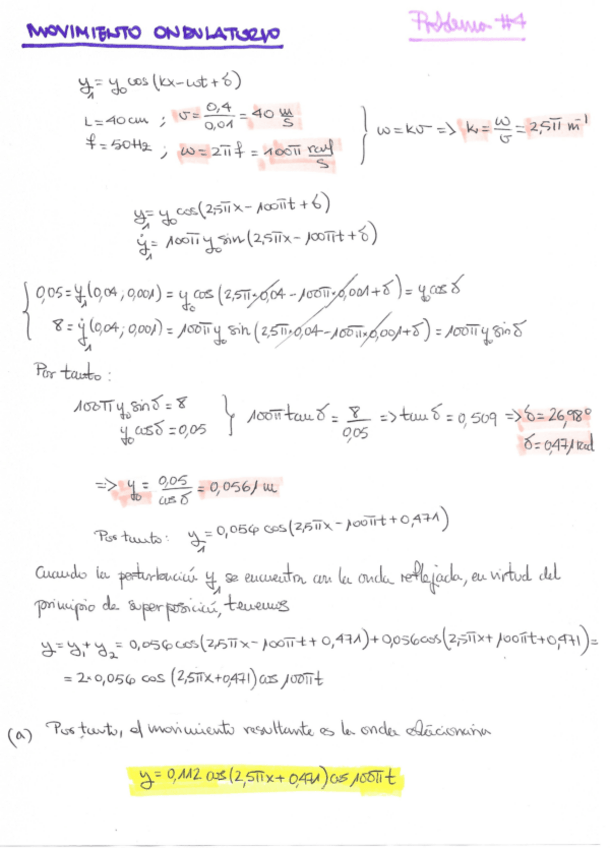 MOVIMIENTO ONDULATORIO
Problema #4
y₁ = y₀ cos(kx-ωt+δ)
L=40cm ; v = 0,4/0,01 = 40 m/s
f=50Hz ; ω=2πf = 100π rad/s } ω=kv => k = ω/v = 2,5π m⁻¹
y₁ = y₀ cos(2,5πx - 100πt + δ)
ẏ₁ = 100π y₀ sin(2,5πx - 100πt + δ)
{ 0,05 = y₁(0,04; 0,001) = y₀ cos(2,5π·0,04 - 100π·0,001 + δ) = y₀ cos δ
8 = ẏ₁(0,04; 0,001) = 100π y₀ sin(2,5π·0,04 - 100π·0,001 + δ) = 100π y₀ sin δ
Por tanto:
100π y₀ sin δ = 8
y₀ cos δ = 0,05 } 100π tan δ = 8/0,05 => tan δ = 0,509 => δ = 26,98°
δ = 0,471 rad
=> y₀ = 0,05/cos δ = 0,0561 m
Por tanto: y₁ = 0,056 cos(2,5πx - 100πt + 0,471)
Cuando la perturbación y₁ se encuentra con la onda reflejada, en virtud del
principio de superposición, tenemos
y = y₁ + y₂ = 0,056 cos(2,5πx - 100πt + 0,471) + 0,056 cos(2,5πx + 100πt + 0,471) =
= 2·0,056 cos (2,5πx+0,471) cos 100πt
(a) Por tanto, el movimiento resultante es la onda estacionaria
y = 0,112 cos(2,5πx + 0,471) cos 100πt